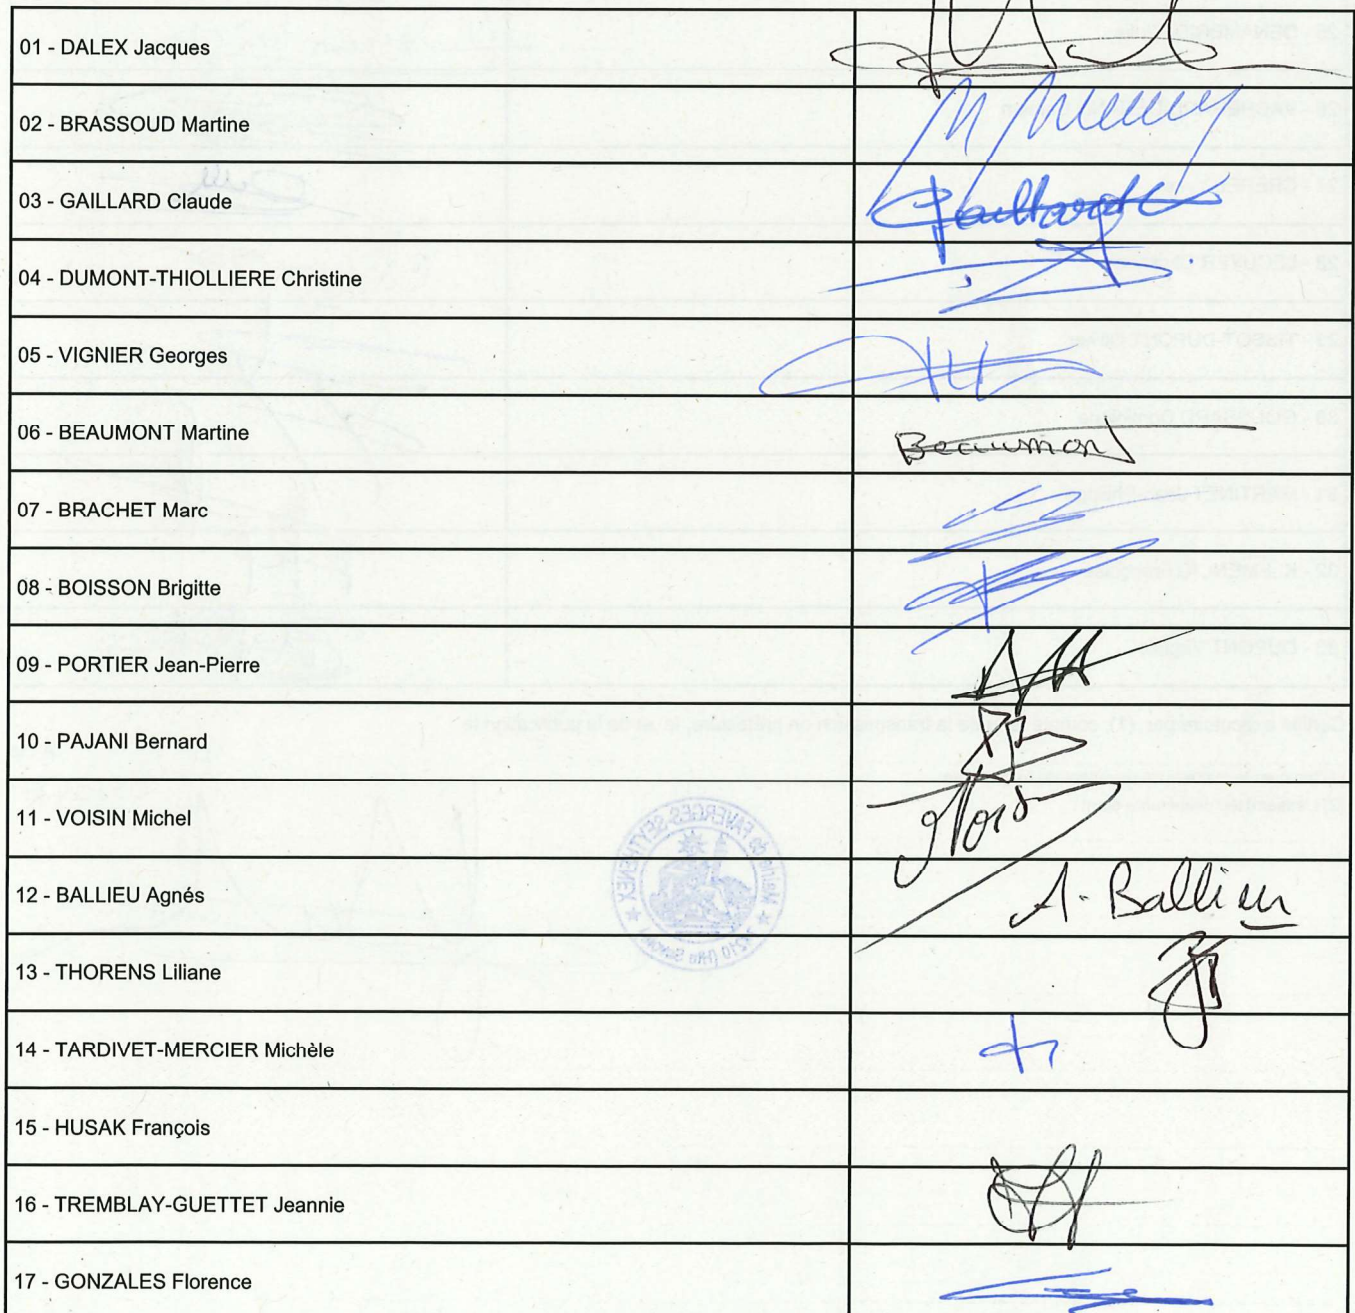 01 - DALEX Jacques
02 - BRASSOUD Martine
03 - GAILLARD Claude Gaillard
04 - DUMONT-THIOLLIERE Christine
05 - VIGNIER Georges
06 - BEAUMONT Martine Beaumont
07 - BRACHET Marc
08 - BOISSON Brigitte
09 - PORTIER Jean-Pierre
10 - PAJANI Bernard
11 - VOISIN Michel
12 - BALLIEU Agnés A. Ballieu
13 - THORENS Liliane
14 - TARDIVET-MERCIER Michèle
15 - HUSAK François
16 - TREMBLAY-GUETTET Jeannie
17 - GONZALES Florence